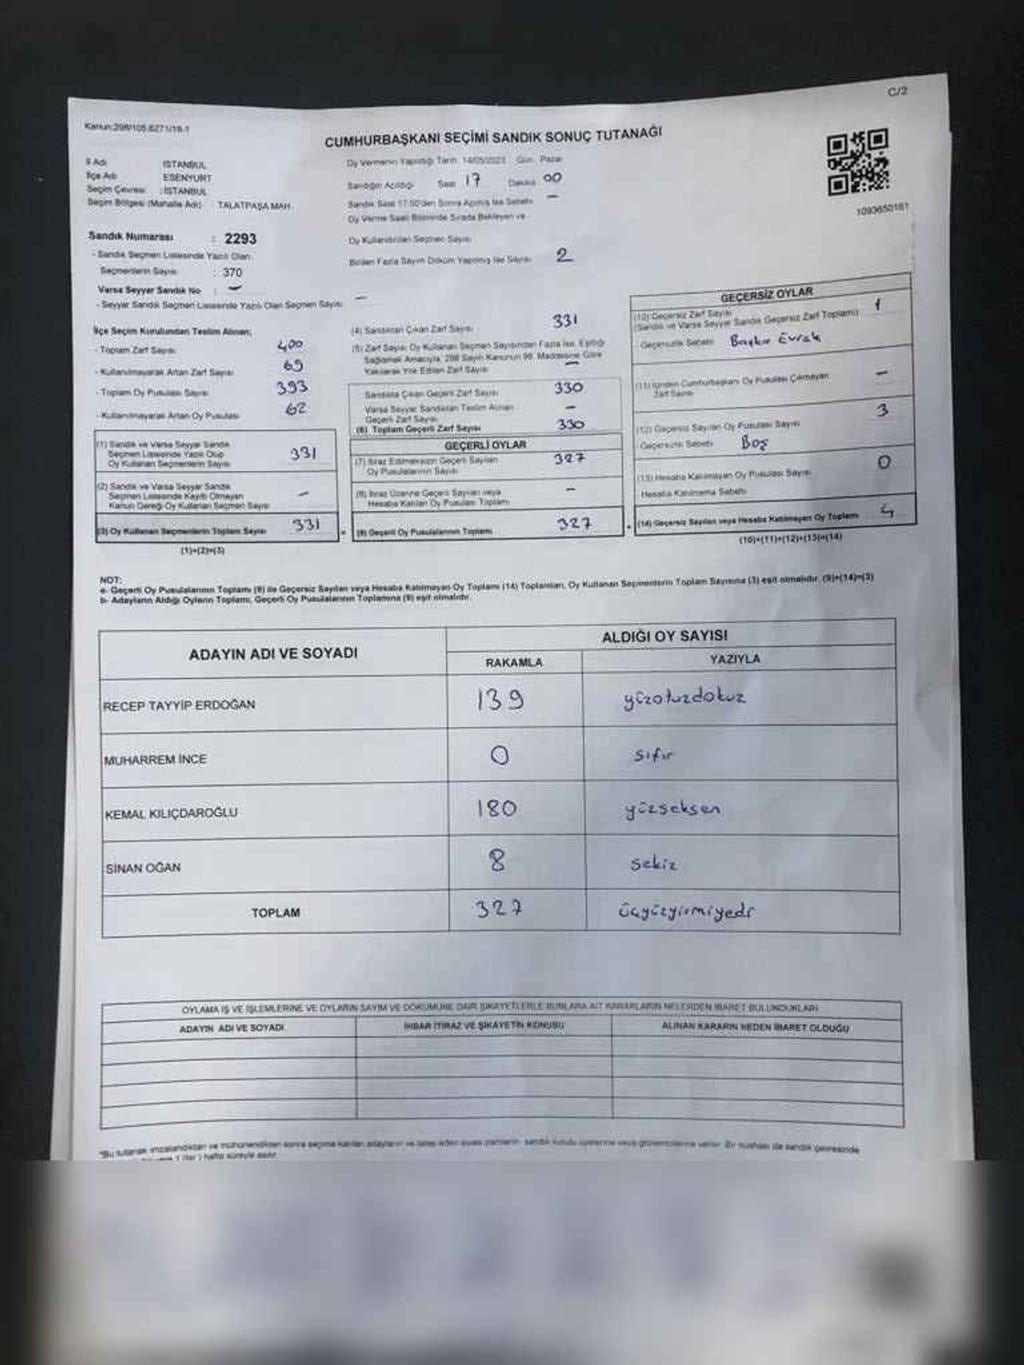 C/2
Kanun:298/105,6271/18-1
CUMHURBAŞKANI SEÇİMİ SANDIK SONUÇ TUTANAĞI
İl Adı İSTANBUL
İlçe Adı ESENYURT
Seçim Çevresi :İSTANBUL
Seçim Bölgesi (Mahalle Adı) : TALATPAŞA MAH.
Oy Vermenin Yapıldığı Tarih 14/05/2023 Gün Pazar
Sandığın Açıldığı Saat 17 Dakika 00
Sandık Saat 17.00'den Sonra Açılmış İse Sebebi —
Oy Verme Saati Bitiminde Sırada Bekleyen ve
Oy Kullandırılan Seçmen Sayısı
Birden Fazla Sayım Döküm Yapılmış İse Sayısı 2
1093650161
Sandık Numarası : 2293
- Sandık Seçmen Listesinde Yazılı Olan
Seçmenlerin Sayısı : 370
Varsa Seyyar Sandık No : —
- Seyyar Sandık Seçmen Listesinde Yazılı Olan Seçmen Sayısı —
İlçe Seçim Kurulundan Teslim Alınan;
- Toplam Zarf Sayısı 400
- Kullanılmayarak Artan Zarf Sayısı 69
- Toplam Oy Pusulası Sayısı 393
- Kullanılmayarak Artan Oy Pusulası 62
(1) Sandık ve Varsa Seyyar Sandık
Seçmen Listesinde Yazılı Olup
Oy Kullanan Seçmenlerin Sayısı 331
(2) Sandık ve Varsa Seyyar Sandık
Seçmen Listesinde Kayıtlı Olmayan
Kanun Gereği Oy Kullanan Seçmen Sayısı —
(3) Oy Kullanan Seçmenlerin Toplam Sayısı 331
(1)+(2)=(3)
(4) Sandıktan Çıkan Zarf Sayısı 331
(5) Zarf Sayısı Oy Kullanan Seçmen Sayısından Fazla İse, Eşitliği
Sağlamak Amacıyla, 298 Sayılı Kanunun 98. Maddesine Göre
Yakılarak Yok Edilen Zarf Sayısı —
Sandıkta Çıkan Geçerli Zarf Sayısı 330
Varsa Seyyar Sandıktan Teslim Alınan
Geçerli Zarf Sayısı —
(6) Toplam Geçerli Zarf Sayısı 330
GEÇERLİ OYLAR
(7) İtiraz Edilmeksizin Geçerli Sayılan
Oy Pusulalarının Sayısı 327
(8) İtiraz Üzerine Geçerli Sayılan veya
Hesaba Katılan Oy Pusulası Toplamı —
= (9) Geçerli Oy Pusulalarının Toplamı 327
GEÇERSİZ OYLAR
(10) Geçersiz Zarf Sayısı
(Sandık ve Varsa Seyyar Sandık Geçersiz Zarf Toplamı) 1
Geçersizlik Sebebi Başka Evrak
(11) İçinden Cumhurbaşkanı Oy Pusulası Çıkmayan
Zarf Sayısı —
(12) Geçersiz Sayılan Oy Pusulası Sayısı 3
Geçersizlik Sebebi Boş
(13) Hesaba Katılmayan Oy Pusulası Sayısı 0
Hesaba Katılmama Sebebi
+ (14) Geçersiz Sayılan veya Hesaba Katılmayan Oy Toplamı 4
(10)+(11)+(12)+(13)=(14)
NOT:
a- Geçerli Oy Pusulalarının Toplamı (9) ile Geçersiz Sayılan veya Hesaba Katılmayan Oy Toplamı (14) Toplamları, Oy Kullanan Seçmenlerin Toplam Sayısına (3) eşit olmalıdır. (9)+(14)=(3)
b- Adayların Aldığı Oyların Toplamı, Geçerli Oy Pusulalarının Toplamına (9) eşit olmalıdır.
ADAYIN ADI VE SOYADI ALDIĞI OY SAYISI
RAKAMLA YAZIYLA
RECEP TAYYİP ERDOĞAN 139 yüzotuzdokuz
MUHARREM İNCE 0 sıfır
KEMAL KILIÇDAROĞLU 180 yüzseksen
SİNAN OĞAN 8 sekiz
TOPLAM 327 üçyüzyirmiyedi
OYLAMA İŞ VE İŞLEMLERİNE VE OYLARIN SAYIM VE DÖKÜMÜNE DAİR ŞİKAYETLERLE BUNLARA AİT KARARLARIN NELERDEN İBARET BULUNDUKLARI
ADAYIN ADI VE SOYADI İHBAR İTİRAZ VE ŞİKAYETİN KONUSU ALINAN KARARIN NEDEN İBARET OLDUĞU
"Bu tutanak imzalandıktan ve mühürlendikten sonra seçime katılan adayların ve talep eden siyasi partilerin sandık kurulu üyelerine veya gözlemcilerine verilir. Bir nushası da sandık çevresinde
hafta süreyle asılır.